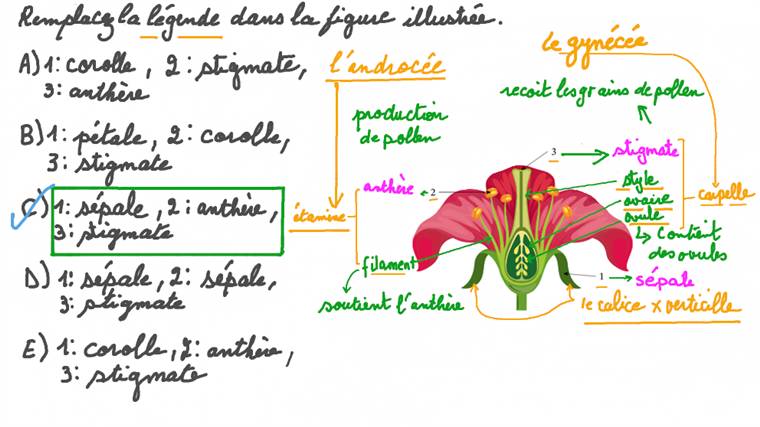 Remplacez la légende dans la figure illustrée.
A) 1: corolle, 2: stigmate,
3: anthère
B) 1: pétale, 2: corolle,
3: stigmate
C) 1: sépale, 2: anthère,
3: stigmate
D) 1: sépale, 2: sépale,
3: stigmate
E) 1: corolle, 2: anthère,
3: stigmate
l'androcée
production
de pollen
anthère
2
étamine
filament
soutient l'anthère
le gynécée
recoit les grains de pollen
3
stigmate
style
ovaire
ovule
carpelle
contient
des ovules
1
sépale
le calice x verticille